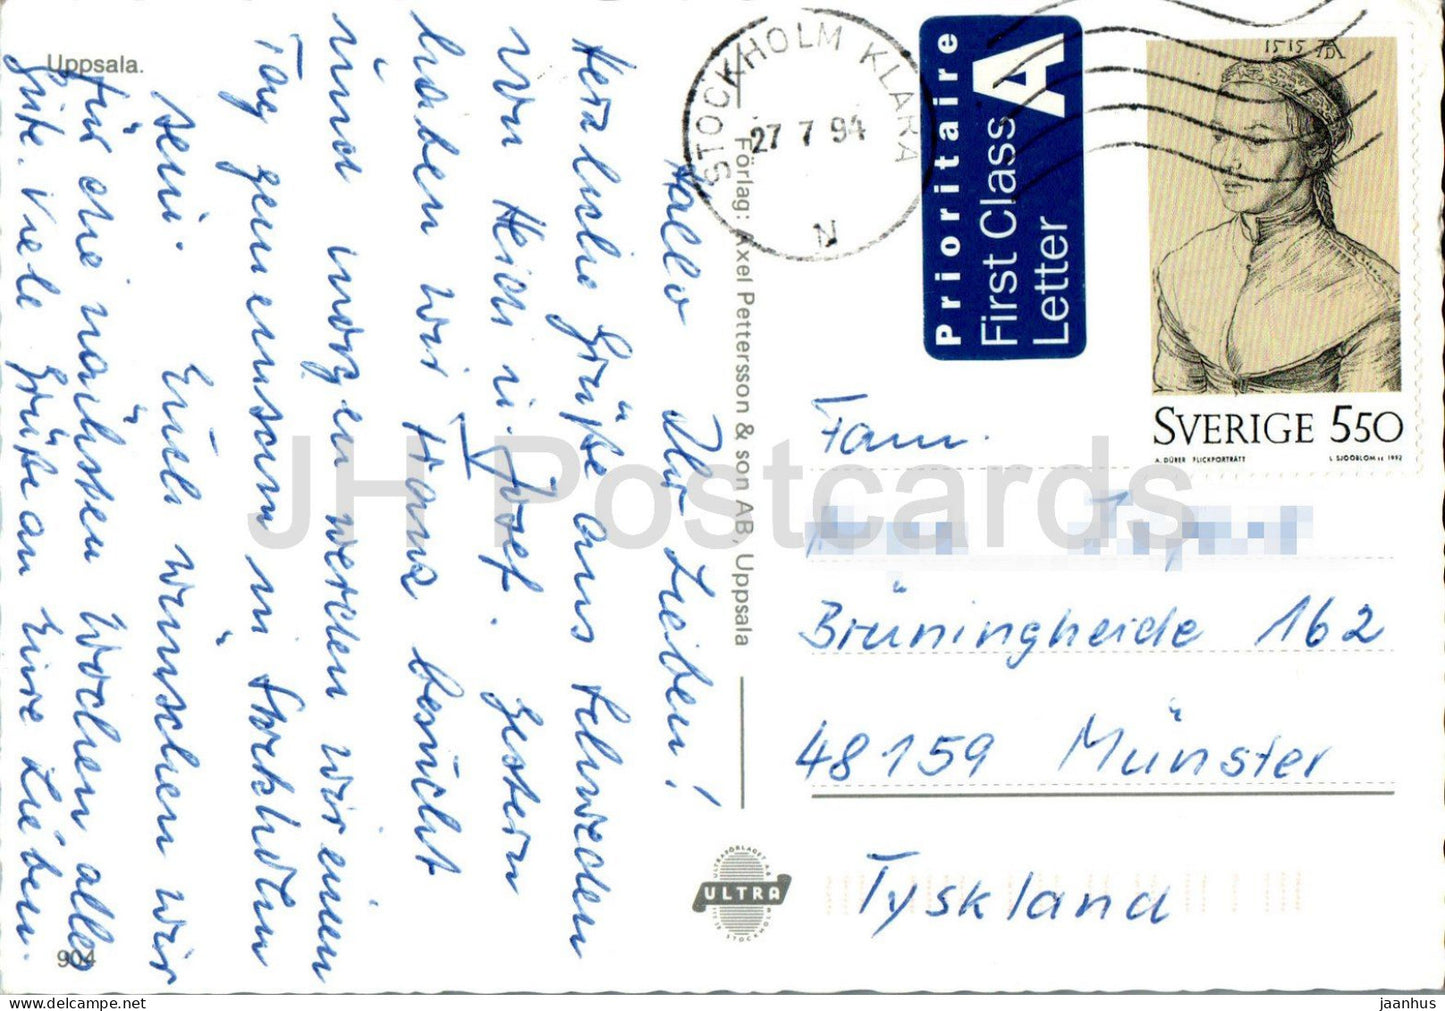 Uppsala.
Hallo Ihr Lieben!
Herzliche Grüße aus Schweden
von Heidi u. Josef. Gestern
haben wir Hana besucht
und morgen werden wir einen
Tag gemeinsam in Stockholm
sein. Euch wünschen wir
für die nächsten Wochen alles
Gute. Viele Grüße an Eure Lieben.
904
Förlag: Axel Pettersson & son AB, Uppsala
ULTRAFÖRLAGET A.B.
ULTRA
STOCKHOLM
STOCKHOLM KLARA
27 7 94
N
Prioritaire
A
First Class
Letter
1515 AD
SVERIGE 550
A. DÜRER FLICKPORTRÄTT L SJÖÖBLOM SC 1992
Fam.
Brüningheide 162
48159 Münster
Tyskland
JH Postcards
jaanhus